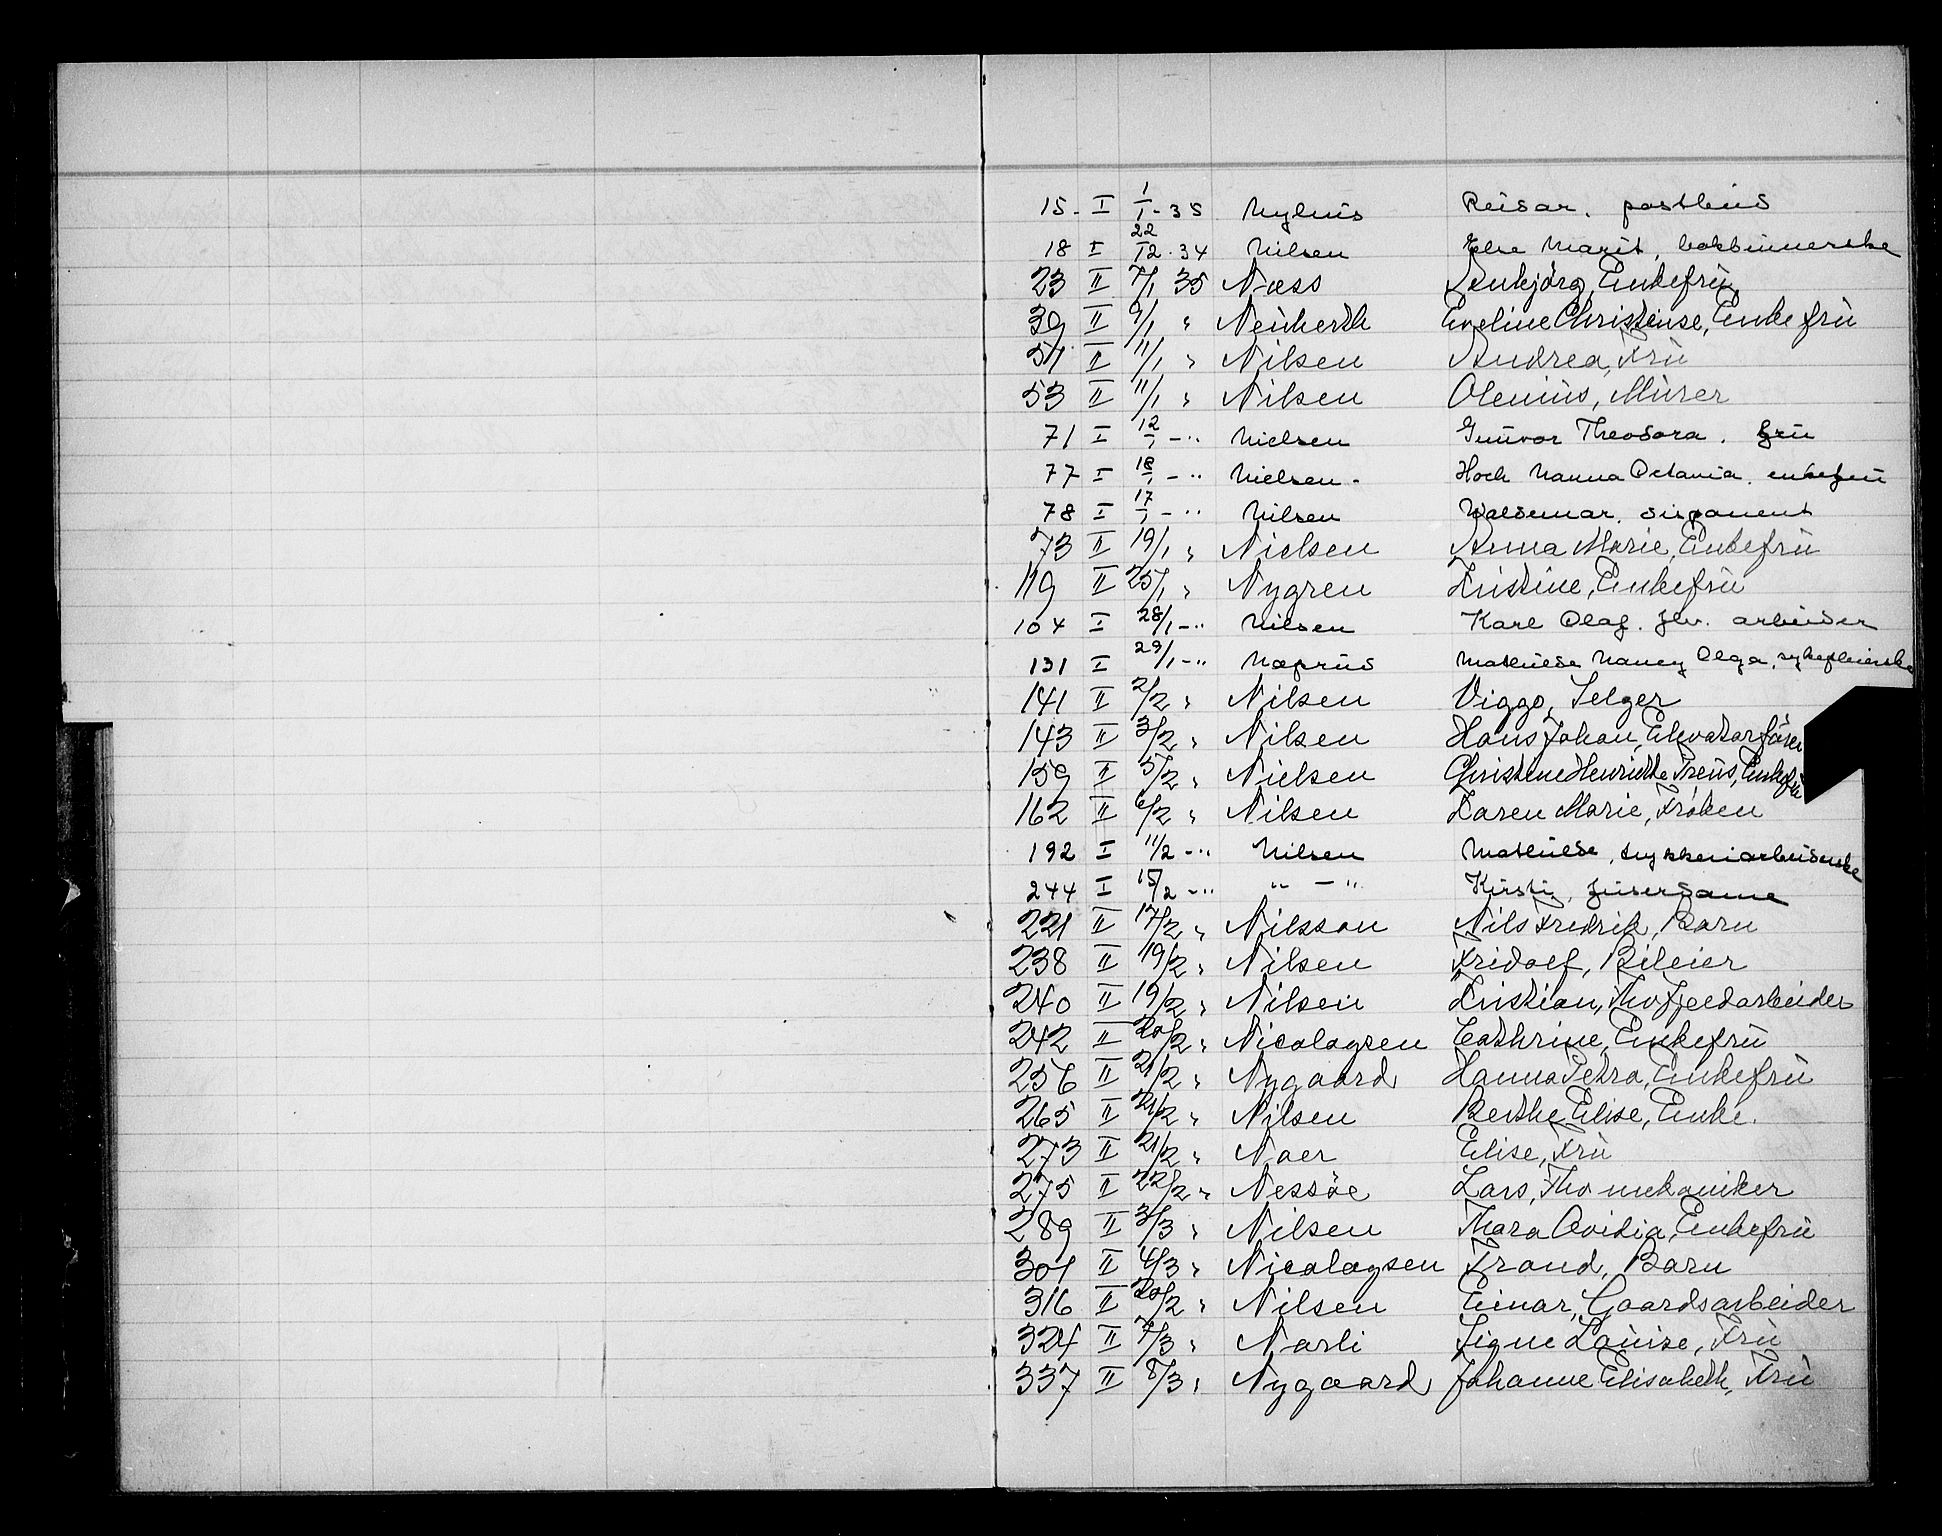 15. I 1/1-35 Nyhuis Reidar, postbud
18 I 22/12-34 Nilsen Else Marit, bokbinnerske
23 II 7/1 35 Næss Ambjörg, Enkefru
39 II 9/1 " Neuberth Eveline Christense, Enkefru
51 II 11/1 " Nilsen Andrea, Fru
53 II 11/1 " Nilsen Olenius, Murer
71 I 12/1-" Nielsen Gunvor Theodora. fru
77 I 18/1-" Nielsen- Hoch Nanna Octavia. enkefru
78 I 17/1-" Nilsen Waldemar. disponent
73 II 19/1 " Nielsen Anna Marie, Enkefru
119 II 25/1 " Nygren Kristine, Enkefru
104 I 28/1-" Nilsen Karl Olaf. fhv. arbeider
131 I 29/1-" Mathilde Nancy Olga, sykepleierske
141 II 2/2 " Nilsen Viggo, Selger
143 II 3/2 " Nilsen Hans Johan, Elevatorfører
159 II 5/2 " Nielsen Christine Henriette Preus, Enkefru
162 II 6/2 " Nilsen Karen Marie, Fröken
192 I 11/2-" Nilsen Mathilde, trykkeriarbeiderske
244 I 15/2-" " - " Kirsti, friserdame
221 II 17/2 " Nilsson Nils Fredrik, Barn
238 II 19/2 " Nilsen Fridolf, Bileier
240 II 19/2 " Nilsen Kristian, Fhv
242 II 20/2 " Nicolaysen Cathrine, Enkefru
256 II 21/2 " Nygaard Hanna Petra, Enkefru
265 II 21/2 " Nilsen Berthe Elise, Enke.
273 II 21/2 " Naer Elise, Fru
275 II 22/2 " Nessöe Lars, Fhv mekaniker
289 II 3/3 " Nilsen Thora Ovidia, Enkefru
301 II 4/3 " Nicolaysen Trond, Barn
316 II 20/2 " Nilsen Einar, Gaardsarbeider
324 II 7/3 " Narli Signe Louise, Fru
337 II 8/3 " Nygaard Johanne Elisabeth, Fru